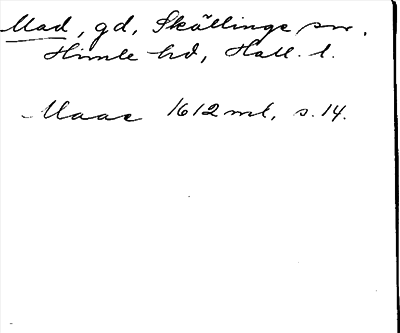 Mad, gd, Skällinge sn,
Himle hd, Hall. l.
Maae 1612 ml, s. 14.